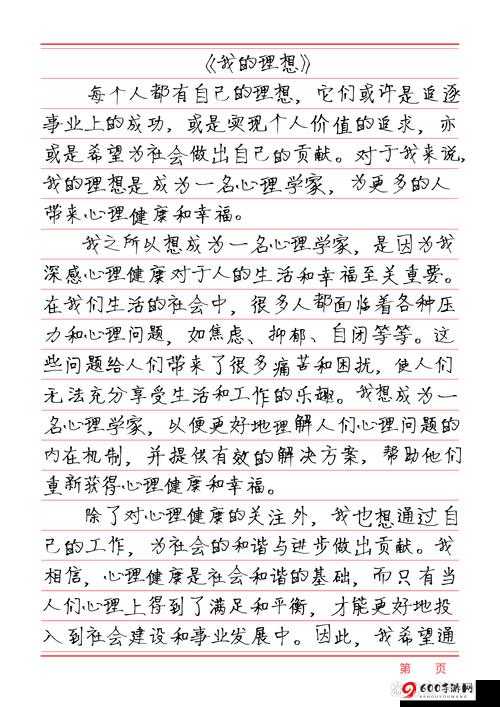 《我的理想》
每个人都有自己的理想，它们或许是追逐
事业上的成功，或是实现个人价值的追求，亦
或是希望为社会做出自己的贡献。对于我来说，
我的理想是成为一名心理学家，为更多的人
带来心理健康和幸福。
我之所以想成为一名心理学家，是因为我
深感心理健康对于人的生活和幸福至关重要。
在我们生活的社会中，很多人都面临着各种压
力和心理问题，如焦虑、抑郁、自闭等等。这
些问题给人们带来了很多痛苦和困扰，使人们
无法充分享受生活和工作的乐趣。我想成为一
名心理学家，以便更好地理解人们心理问题的
内在机制，并提供有效的解决方案，帮助他们
重新获得心理健康和幸福。
除了对心理健康的关注外，我也想通过自
己的工作，为社会的和谐与进步做出贡献。我
相信，心理健康是社会和谐的基础，而只有当
人们心理上得到了满足和平衡，才能更好地投
入到社会建设和事业发展中。因此，我希望通
第 页
600手游网